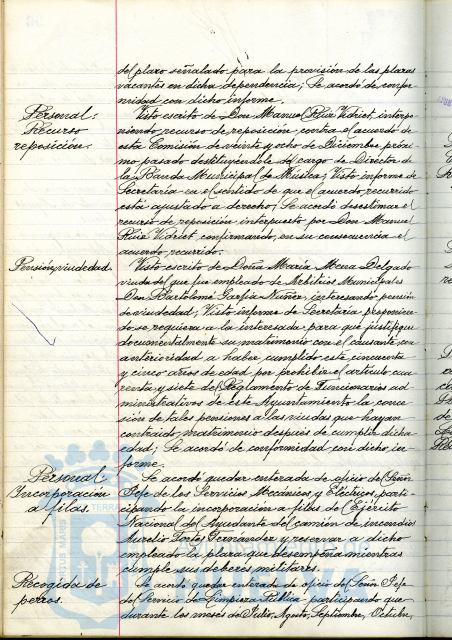 del plazo señalado para la provisión de las plazas
vacantes en dicha dependencia; Se acordó de confor-
midad con dicho informe.
Personal:
Recurso
reposición.
Visto escrito de Don Manuel Ruiz Vidriet, interpo-
niendo recurso de reposición contra el acuerdo de
esta Comisión de veinte y ocho de Diciembre próxi-
mo pasado destituyéndole del cargo de Director de
la Banda Municipal de Música; Visto informe de
Secretaría en el sentido de que el acuerdo recurrido
está ajustado a derecho; Se acordó desestimar el
recurso de reposición interpuesto por Don Manuel
Ruiz Vidriet confirmando, en su consecuencia el
acuerdo recurrido.
Pensión viudedad.
Visto escrito de Doña María Mena Delgado
viuda del que fue empleado de Arbitrios Municipales
Don Bartolomé Garfia Núñez, interesando pensión
de viudedad; Visto informe de Secretaría proponien-
do se requiera a la interesada para que justifique
documentalmente su matrimonio con el causante con
anterioridad a haber cumplido este cincuenta
y cinco años de edad por prohibir el artículo cua-
renta y siete del Reglamento de Funcionarios ad-
ministrativos de este Ayuntamiento la conce-
sión de tales pensiones a las viudas que hayan
contraido matrimonio después de cumplir dicha
edad; Se acordó de conformidad con dicho in-
forme.
Personal
Incorporación
a filas.
Se acordó quedar enterada de oficio del Señor
Jefe de los Servicios Mecánicos y Eléctricos, parti-
cipando la incorporación a filas del Ejército
Nacional del Ayudante de camión de incendios
Aurelio Tortes Fernández y reservar a dicho
empleado la plaza que desempeña mientras
cumple sus deberes militares.
Recogida de
perros.
Se acordó quedar enterada de oficio del Señor Jefe
del Servicio de Limpieza Pública participando que
durante los meses de Julio, Agosto, Septiembre, Octubre,